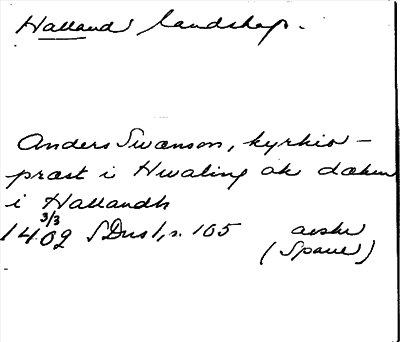 Halland landskap.
Anders Swanson, kyrkio-
præst i Hwaling ok dækn
i Hallandh
3/3
1409 SDns 1, s. 105 avskr
(Spane)